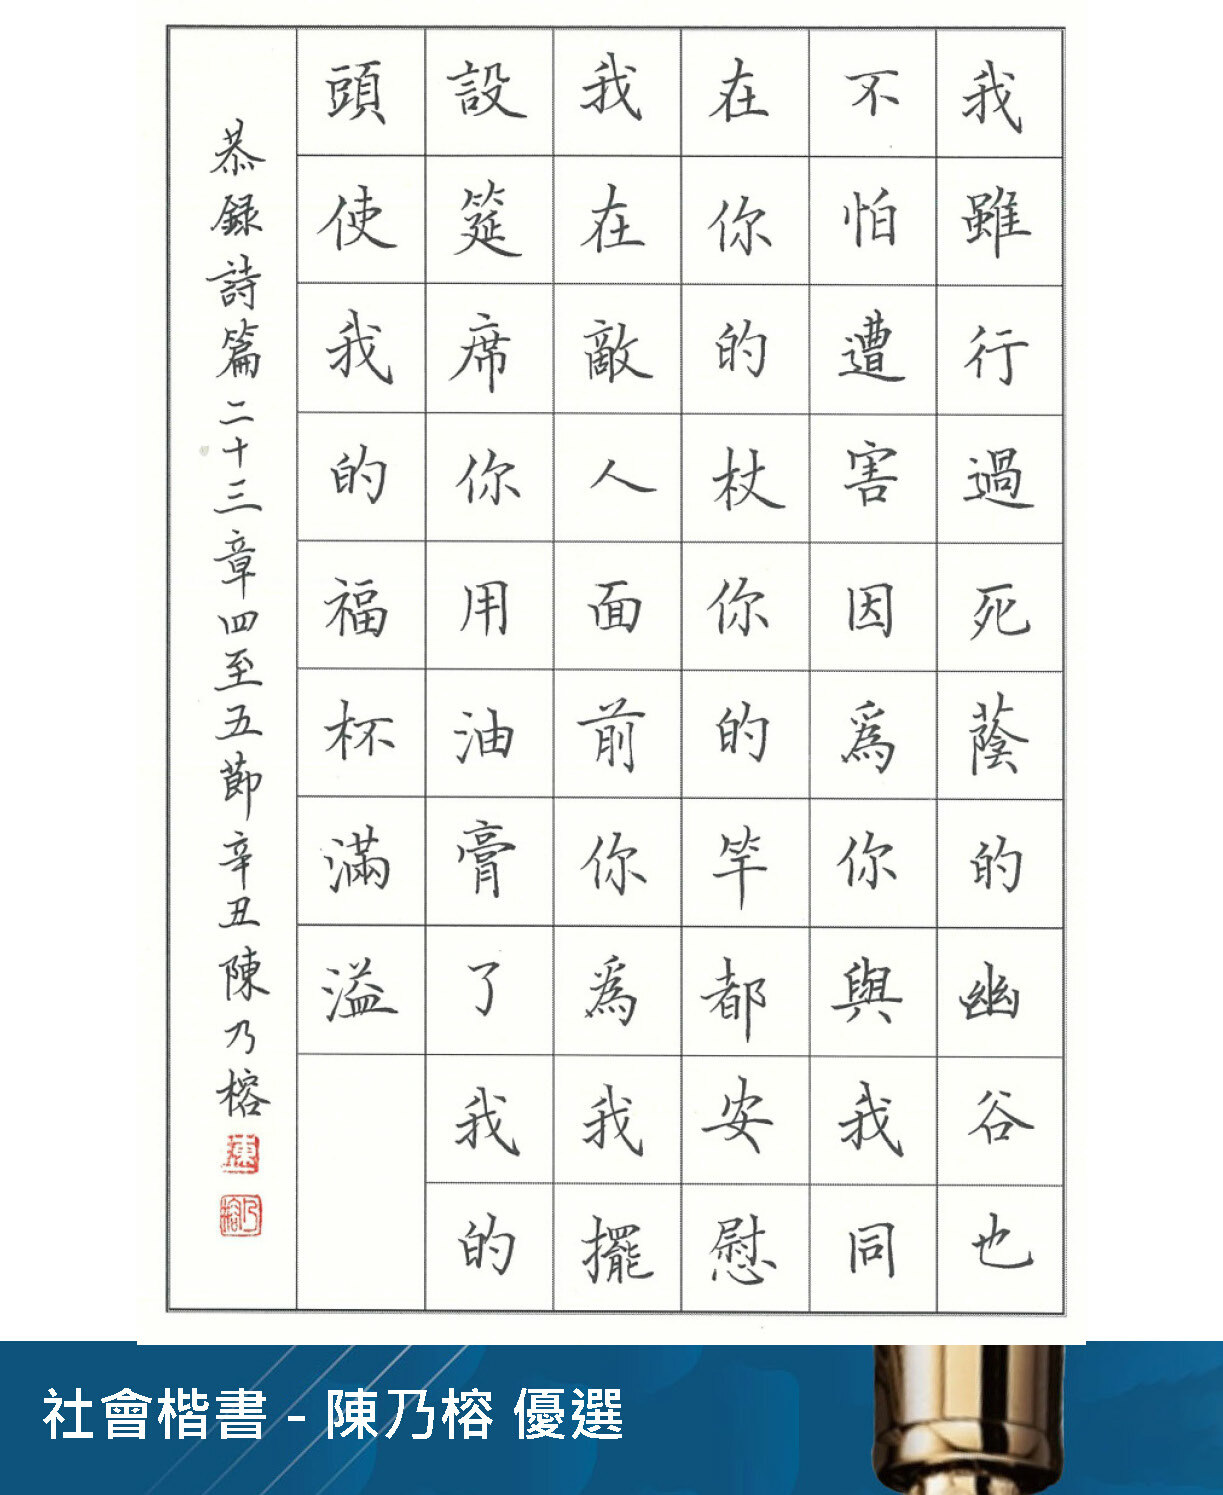 我雖行過死蔭的幽谷也
不怕遭害因為你與我同
在你的杖你的竿都安慰
我在敵人面前你為我擺
設筵席你用油膏了我的
頭使我的福杯滿溢
恭録詩篇二十三章四至五節辛丑陳乃榕
陳
乃榕
社會楷書 - 陳乃榕 優選